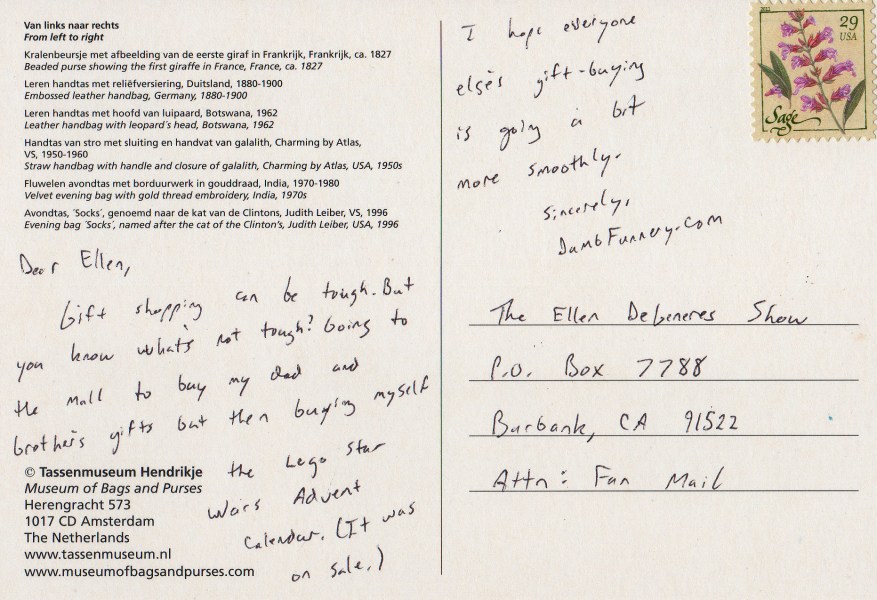 Van links naar rechts
From left to right
Kralenbeursje met afbeelding van de eerste giraf in Frankrijk, Frankrijk, ca. 1827
Beaded purse showing the first giraffe in France, France, ca. 1827
Leren handtas met reliëfversiering, Duitsland, 1880-1900
Embossed leather handbag, Germany, 1880-1900
Leren handtas met hoofd van luipaard, Botswana, 1962
Leather handbag with leopard´s head, Botswana, 1962
Handtas van stro met sluiting en handvat van galalith, Charming by Atlas,
VS, 1950-1960
Straw handbag with handle and closure of galalith, Charming by Atlas, USA, 1950s
Fluwelen avondtas met borduurwerk in gouddraad, India, 1970-1980
Velvet evening bag with gold thread embroidery, India, 1970s
Avondtas, ´Socks´, genoemd naar de kat van de Clintons, Judith Leiber, VS, 1996
Evening bag ´Socks´, named after the cat of the Clinton’s, Judith Leiber, USA, 1996
Dear Ellen,
Gift shopping can be tough. But
you know what's not tough? Going to
the mall to buy my dad and
brother's gifts but then buying myself
the Lego Star
Wars Advent
Calendar. (It was
on sale.)
© Tassenmuseum Hendrikje
Museum of Bags and Purses
Herengracht 573
1017 CD Amsterdam
The Netherlands
www.tassenmuseum.nl
www.museumofbagsandpurses.com
I hope everyone
else's gift-buying
is going a bit
more smoothly.
Sincerely,
DumbFunnery.com
2011
29
USA
Sage
The Ellen DeGeneres Show
P.O. Box 7788
Burbank, CA 91522
Attn: Fan Mail